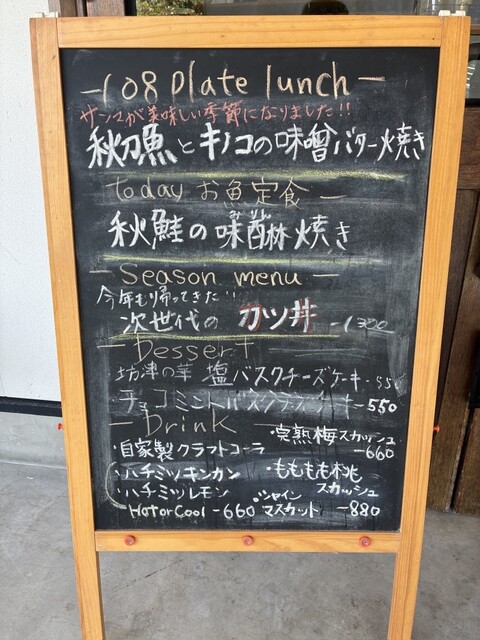 -108 Plate lunch-
サンマが美味しい季節になりました!!
秋刀魚とキノコの味噌バター焼き
today お魚定食-
秋鮭の味醂焼き
みりん
-Season menu-
今年も帰ってきた!!
次世代の カツ丼 -1300
-Dessert-
坊津の華 塩バスクチーズケーキ-550
チョコミントバスクチーズケーキ-550
-Drink
・自家製クラフトコーラ
・ハチミツキンカン
・ハチミツレモン
Hot or Cool -660
・完熟梅スカッシュ
-660
・ももももも桃
スカッシュ
シャイン
マスカット -880